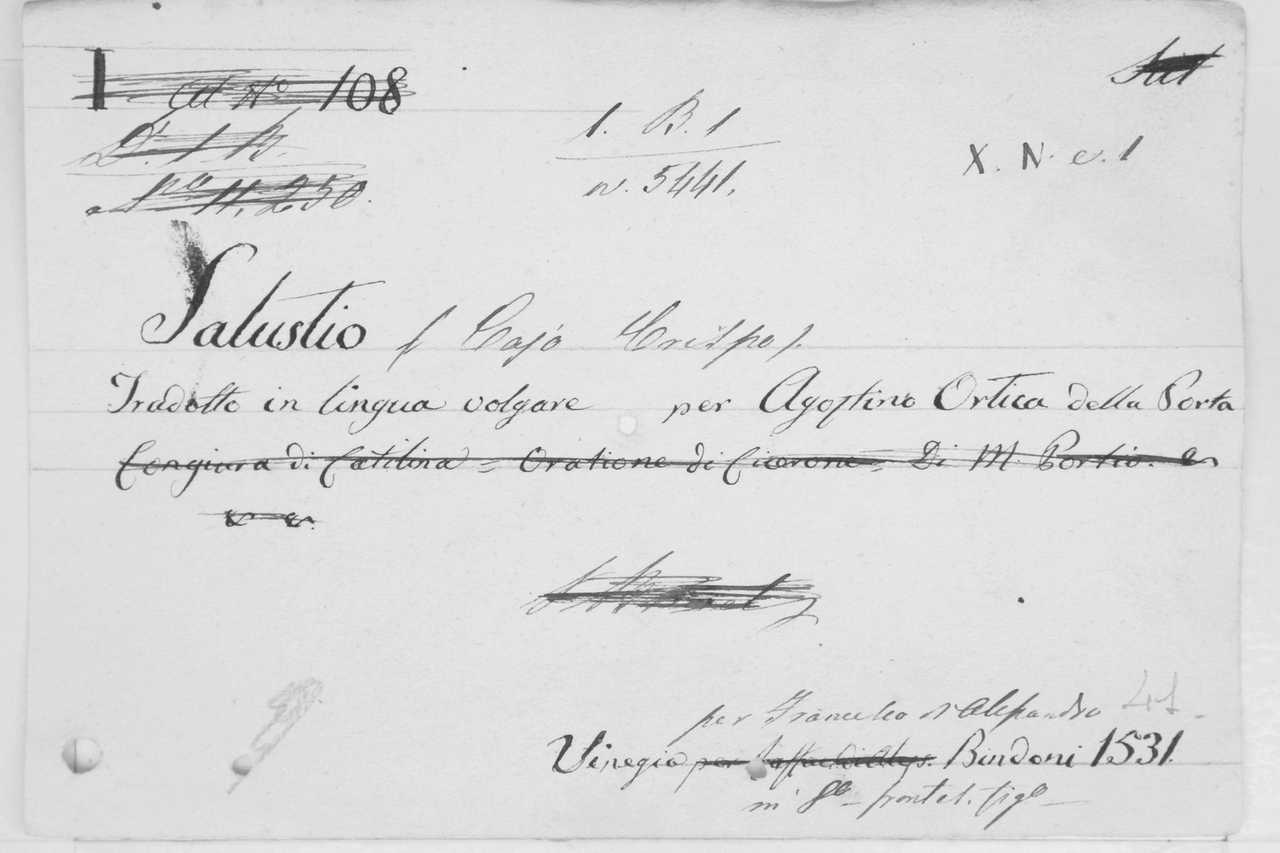 108
1. B. 1
n. 5441.
X. N. c. 1
Salustio ( Cajo Crispo ).
Tradotto in lingua volgare per Agostino Ortica della Porta
Congiura di Catilina = Oratione di Cicerone = Di M. Portio. e
e e.
per Francesco d'Alessandro
Vinegia per Bindoni 1531.
in 8º frontesp. figº